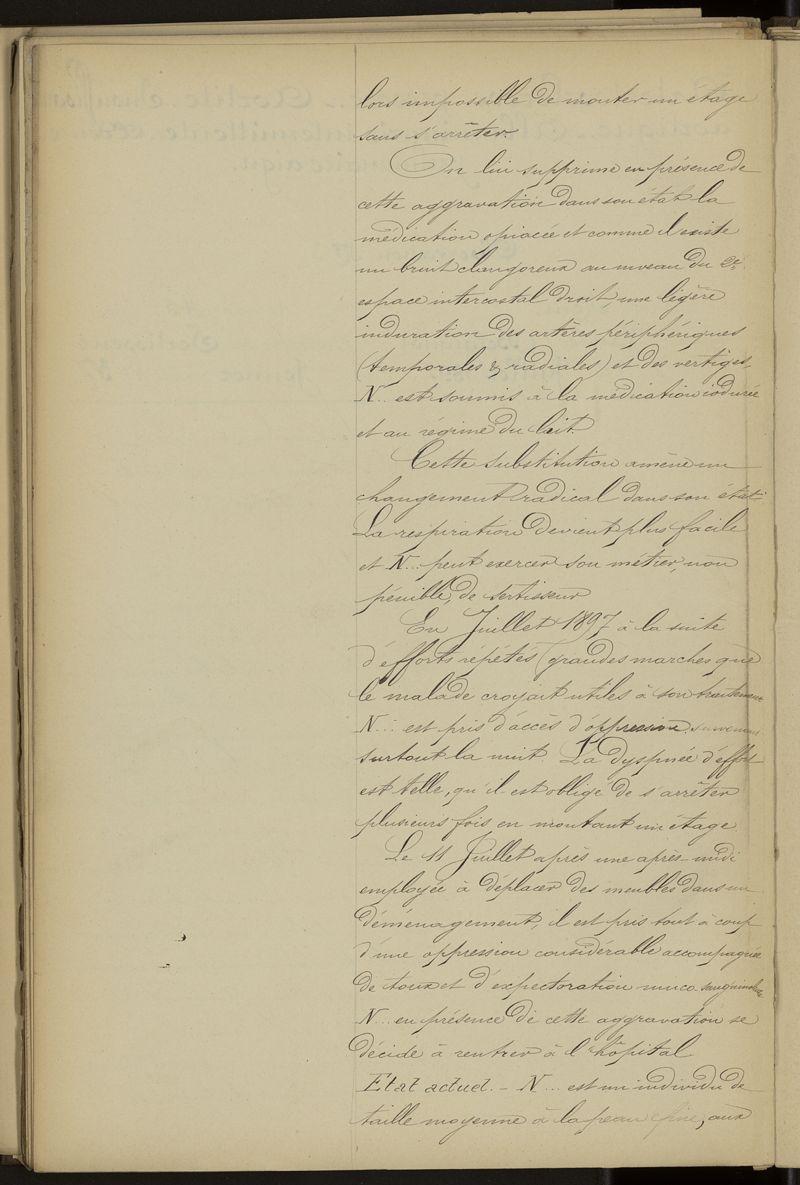 lors impossible de monter un étage
sans s'arrêter.
On lui supprime en présence de
cette aggravation dans son état la
médication opiacée et comme il existe
un bruit clangoreux au niveau du 2e
espace intercostal droit, une légère
induration des artères périphériques
(temporales & radiales) et des vertiges,
N... est soumis à la médication iodurée
et au régime du lait.
Cette substitution amène un
changement radical dans son état.
La respiration devient plus facile
et N... peut exercer son métier, non
pénible, de sertisseur
En Juillet 1897 à la suite
d'efforts répétés (grandes marches que
le malade croyait utiles à son traitement
N... est pris d'accès d'oppression survenant
surtout la nuit. La dyspnée d'effort
est telle, qu'il est obligé de s'arrêter
plusieurs fois en montant un étage.
Le 11 Juillet après une après-midi
employée à déplacer des meubles dans un
déménagement, il est pris tout à coup
d'une oppression considérable accompagnée
de toux et d'expectoration muco-sanguinolente
N... en présence de cette aggravation se
décide à rentrer à l'hôpital
Etat actuel. - N... est un individu de
taille moyenne à la peau fine, aux